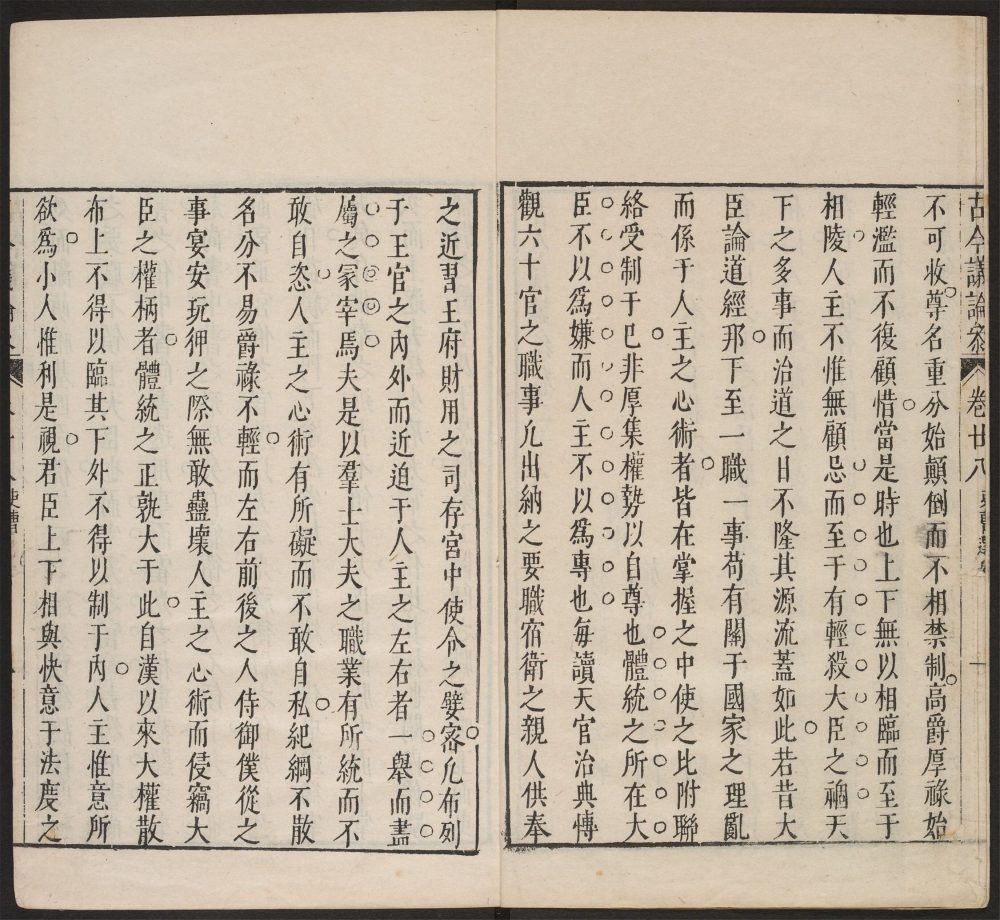 古今議論叅 卷廿八
不可收尊名重分始顛倒而不相禁制高爵厚祿始
輕濫而不復顧惜當是時也上下無以相臨而至于
相陵人主不惟無顧忌而至于有輕殺大臣之禍天
下之多事而治道之日不隆其源流蓋如此若昔大
臣論道經邦下至一職一事苟有關于國家之理亂
而係于人主之心術者皆在掌握之中使之比附聯
絡受制于己非厚集權勢以自尊也體統之所在大
臣不以爲嫌而人主不以爲專也每讀天官治典傳
觀六十官之職事凢出納之要職宿衛之親人供奉
之近習王府財用之司存宮中使令之嬖宻凢布列
于王官之內外而近迫于人主之左右者一舉而盡
屬之冢宰焉夫是以羣士大夫之職業有所統而不
敢自恣人主之心術有所礙而不敢自私紀綱不散
名分不易爵祿不輕而左右前後之人侍御僕從之
事宴安玩狎之際無敢蠱壞人主之心術而侵竊大
臣之權柄者體統之正孰大于此自漢以來大權散
布上不得以臨其下外不得以制于內人主惟意所
欲爲小人惟利是視君臣上下相與快意于法度之